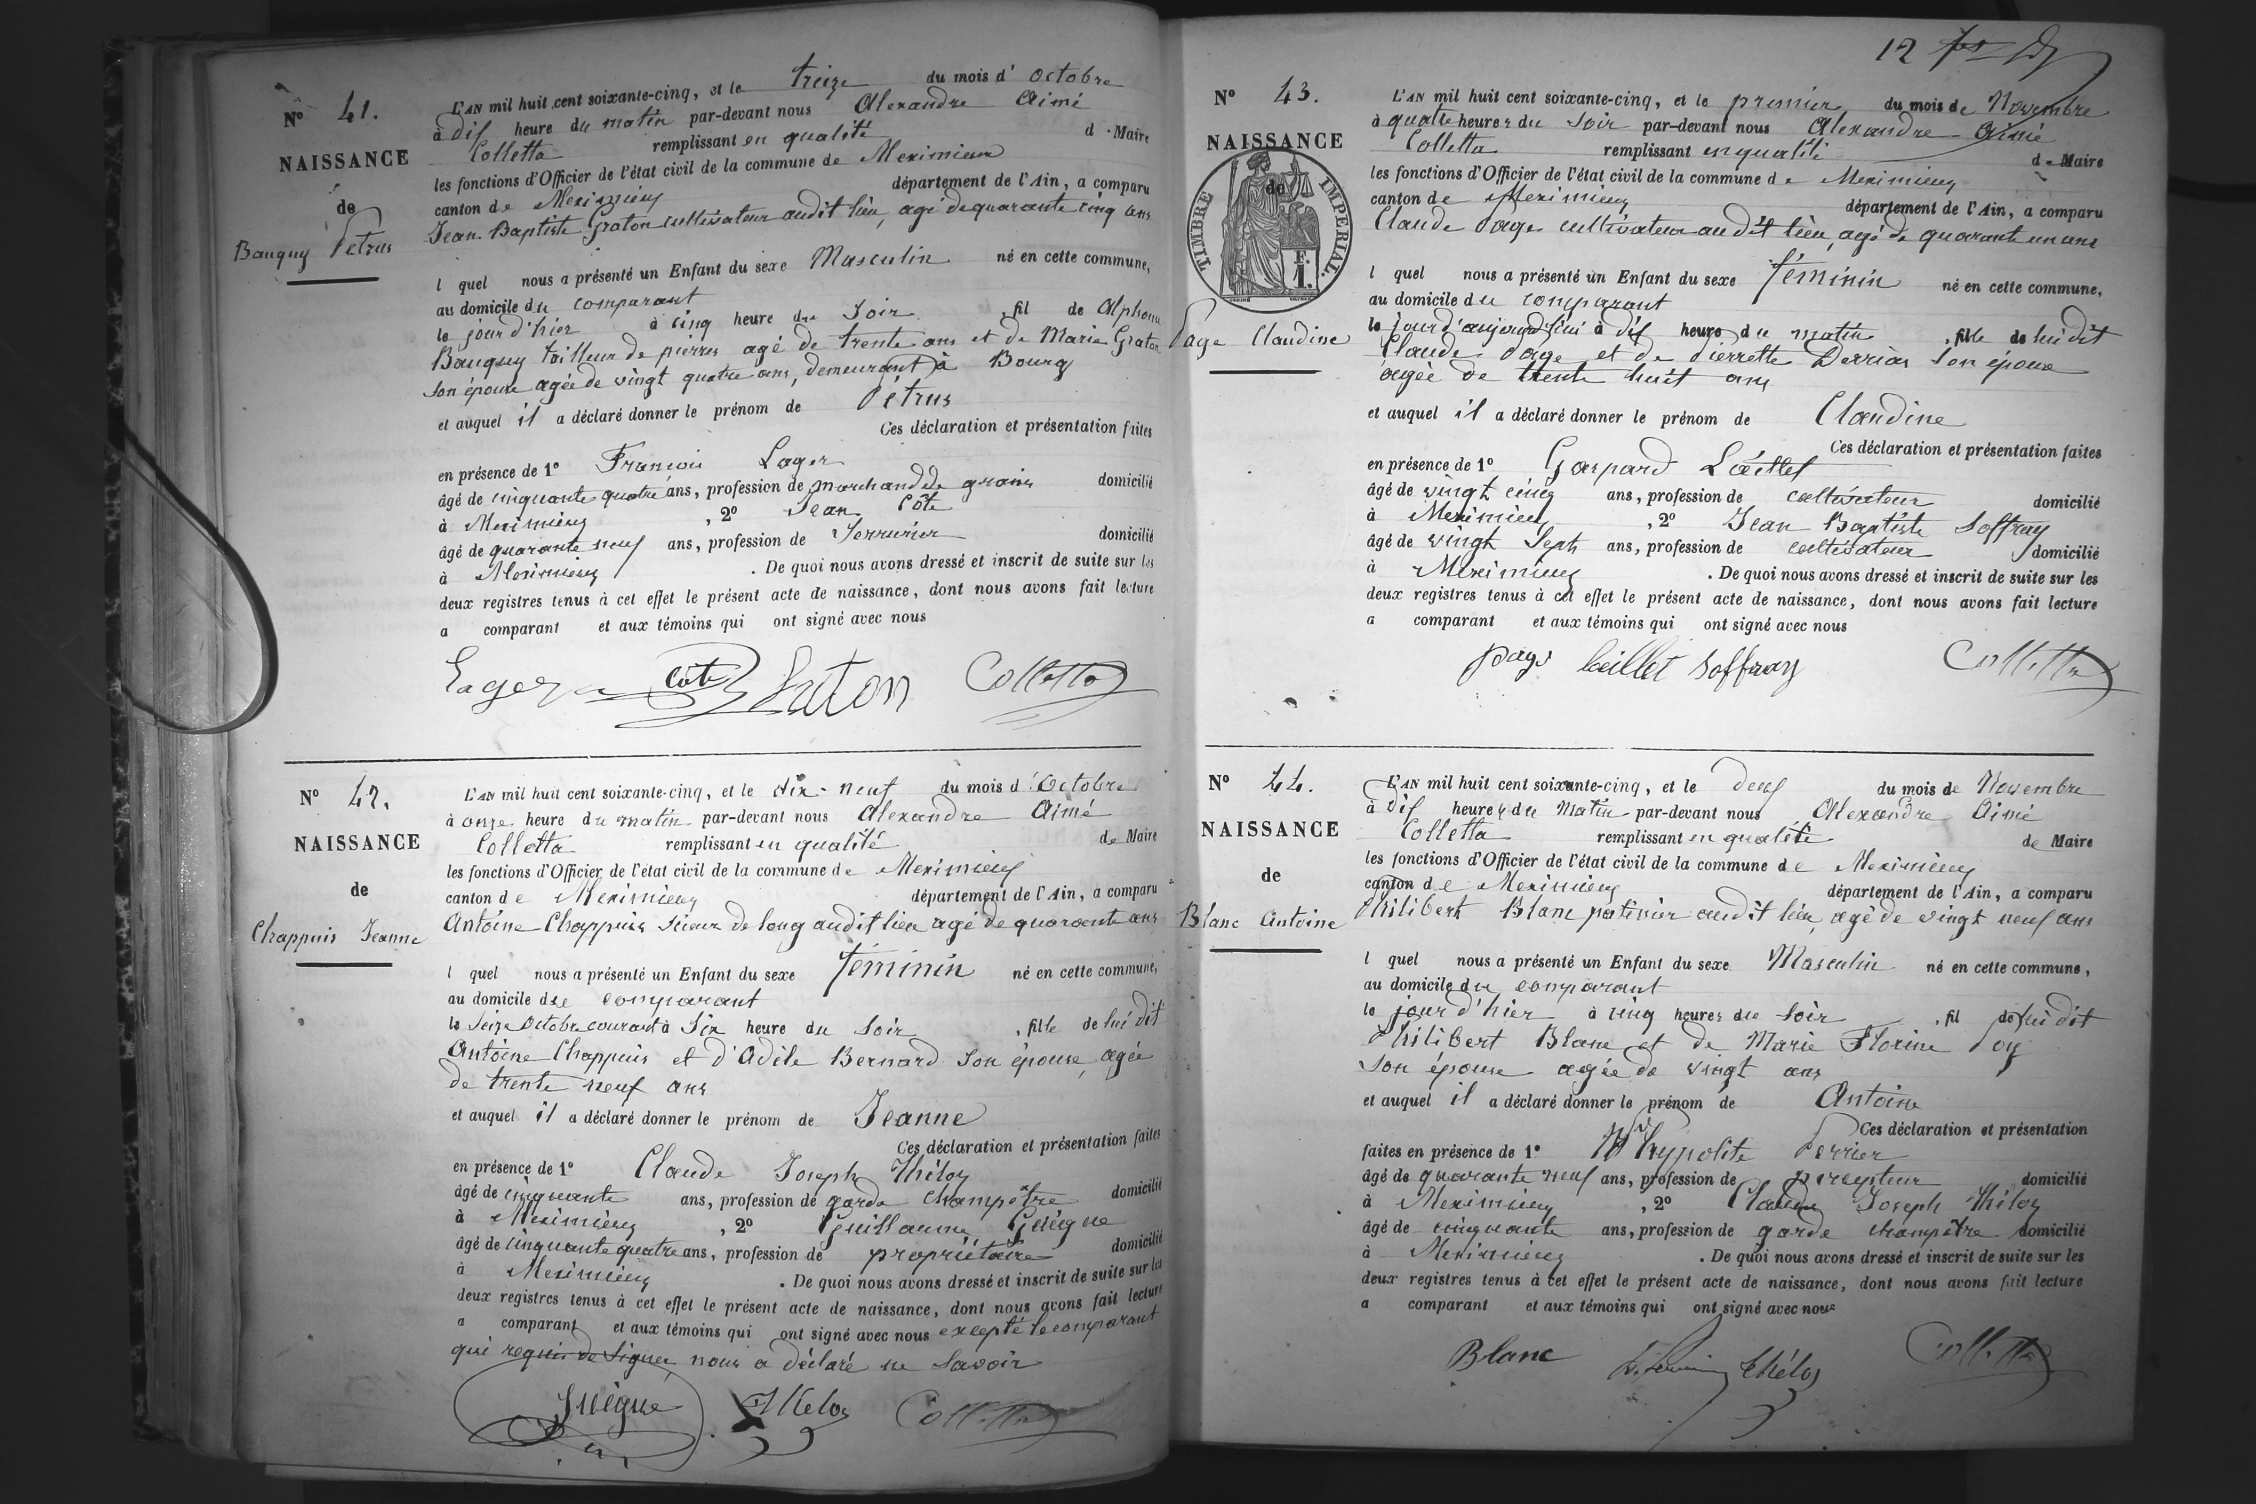 N° 41.
NAISSANCE
de
Bauguy Petrus
L'AN mil huit cent soixante-cinq, et le treize du mois d'octobre
à dix heure du matin par-devant nous Alexandre Aimé
Colletta remplissant en qualité d Maire
les fonctions d'Officier de l'état civil de la commune de Meximieux
canton de Meximieux département de l'Ain, a comparu
Jean-Baptiste Graton cultivateur audit lieu, agé de quarante cinq ans
l quel nous a présenté un Enfant du sexe Masculin né en cette commune,
au domicile du comparant
le jour d'hier à cinq heure du Soir, fil de Alphonse
Bauguy tailleur de pierres agé de trente ans et de Marie Graton
son épouse agée de vingt quatre ans, demeurant à Bourg
et auquel il a déclaré donner le prénom de Pétrus
Ces déclaration et présentation faites
en présence de 1° François Lager
âgé de cinquante quatre ans, profession de marchand de grains domicilié
à Meximieux, 2° Jean Côte
âgé de quarante neuf ans, profession de Serrurier domicilié
à Meximieux. De quoi nous avons dressé et inscrit de suite sur les
deux registres tenus à cet effet le présent acte de naissance, dont nous avons fait lecture
a comparant et aux témoins qui ont signé avec nous
Lager Côte Graton Colletta
N° 42.
NAISSANCE
de
Chappuis Jeanne
L'AN mil huit cent soixante-cinq, et le dix-neuf du mois d'Octobre
à onze heure du matin par-devant nous Alexandre Aimé
Colletta remplissant en qualité de Maire
les fonctions d'Officier de l'état civil de la commune de Meximieux
canton de Meximieux département de l'Ain, a comparu
Antoine Chappuis scieur de long audit lieu agé de quarante ans
l quel nous a présenté un Enfant du sexe féminin né en cette commune,
au domicile du comparant
le Seize Octobre courant à Six heure du Soir, fille de lui dit
Antoine Chappuis et d'Adèle Bernard son épouse, agée
de trente neuf ans
et auquel il a déclaré donner le prénom de Jeanne
Ces déclaration et présentation faites
en présence de 1° Claude Joseph Théloz
âgé de cinquante ans, profession de garde champêtre domicilié
à Meximieux, 2° Guillaume Guigue
âgé de cinquante quatre ans, profession de propriétaire domicilié
à Meximieux. De quoi nous avons dressé et inscrit de suite sur les
deux registres tenus à cet effet le présent acte de naissance, dont nous avons fait lecture
a comparant et aux témoins qui ont signé avec nous excepté le comparant
qui requis de signer nous a déclaré ne savoir
Guigue Théloz Colletta
12
N° 43.
NAISSANCE
de
TIMBRE IMPERIAL
F.
1.
Page Claudine
L'AN mil huit cent soixante-cinq, et le premier du mois de Novembre
à quatre heures du Soir par-devant nous Alexandre Aimé
Colletta remplissant en qualité de Maire
les fonctions d'Officier de l'état civil de la commune de Meximieux
canton de Meximieux département de l'Ain, a comparu
Claude Page cultivateur audit lieu, agé de quarante un ans
l quel nous a présenté un Enfant du sexe féminin né en cette commune,
au domicile du comparant
le jour d'aujourd'hui à dix heure du matin, fille de lui dit
Claude Page et de Pierrette Derrias son épouse
agée de trente huit ans
et auquel il a déclaré donner le prénom de Claudine
Ces déclaration et présentation faites
en présence de 1° Gaspard Lœillet
âgé de vingt cinq ans, profession de cultivateur domicilié
à Meximieux, 2° Jean Baptiste Soffray
âgé de vingt Sept ans, profession de cultivateur domicilié
à Meximieux. De quoi nous avons dressé et inscrit de suite sur les
deux registres tenus à cet effet le présent acte de naissance, dont nous avons fait lecture
a comparant et aux témoins qui ont signé avec nous
page Lœillet Soffray Colletta
N° 44.
NAISSANCE
de
Blanc Antoine
L'AN mil huit cent soixante-cinq, et le deux du mois de Novembre
à dix heures du Matin par-devant nous Alexandre Aimé
Colletta remplissant en qualité de Maire
les fonctions d'Officier de l'état civil de la commune de Meximieux
canton de Meximieux département de l'Ain, a comparu
Philibert Blanc patissier audit lieu, agé de vingt neuf ans
l quel nous a présenté un Enfant du sexe Masculin né en cette commune,
au domicile du comparant
le jour d'hier à cinq heures du Soir, fil de lui dit
Philibert Blanc et de Marie Florine Poy
son épouse agée de vingt ans
et auquel il a déclaré donner le prénom de Antoine
Ces déclaration et présentation
faites en présence de 1° Hypolite Perrier
âgé de quarante neuf ans, profession de percepteur domicilié
à Meximieux, 2° Claude Joseph Théloz
âgé de cinquante ans, profession de garde champêtre domicilié
à Meximieux. De quoi nous avons dressé et inscrit de suite sur les
deux registres tenus à cet effet le présent acte de naissance, dont nous avons fait lecture
a comparant et aux témoins qui ont signé avec nous
Blanc Théloz Colletta